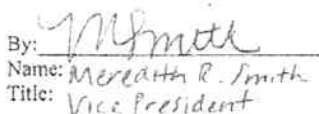 By: MSmith
Name: Meredith R. Smith
Title: Vice President